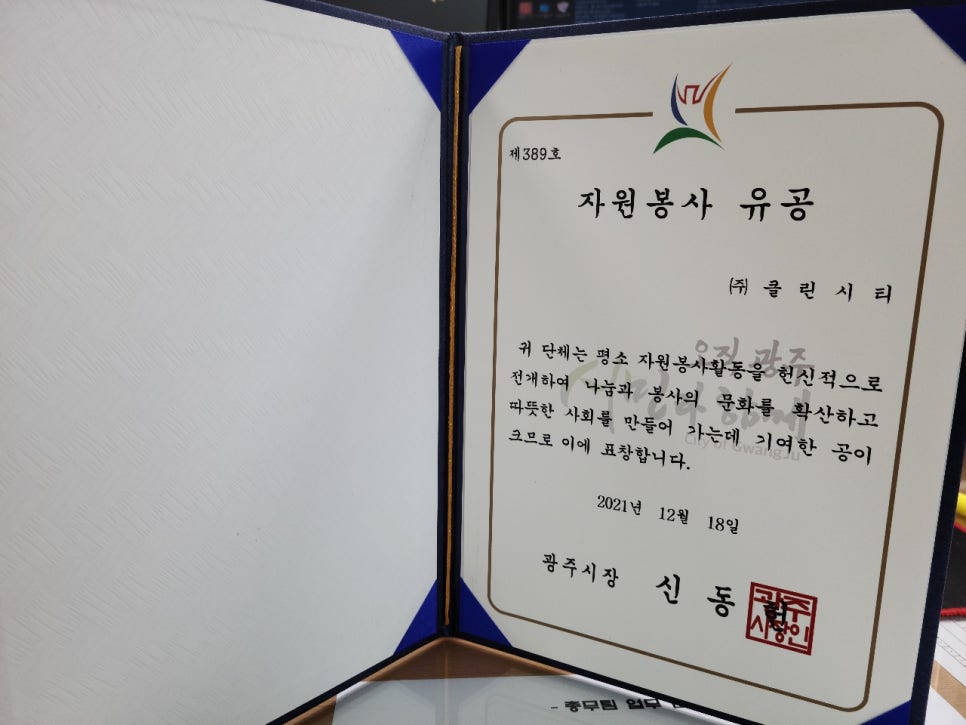 제389호
자원봉사 유공
㈜ 클린시티
오직 광주
시민과 함께
City of Gwangju
귀 단체는 평소 자원봉사활동을 헌신적으로
전개하여 나눔과 봉사의 문화를 확산하고
따뜻한 사회를 만들어 가는데 기여한 공이
크므로 이에 표창합니다.
2021년 12월 18일
광주시장 신동헌
광주
시장인
- 총무팀 업무